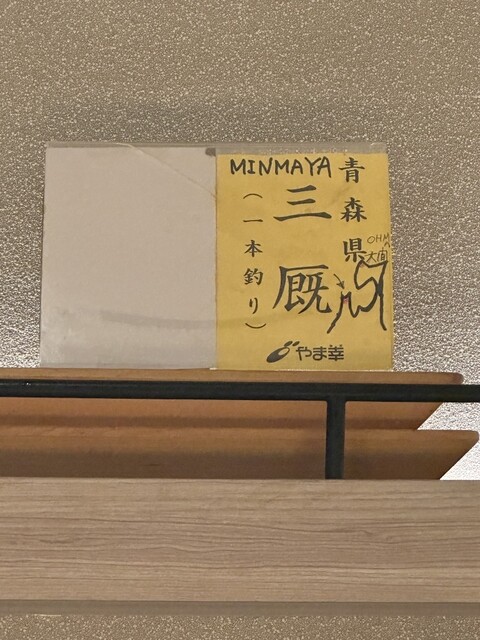 MINMAYA
青森県
三厩
（一本釣り）
OHMA
大間
やま幸